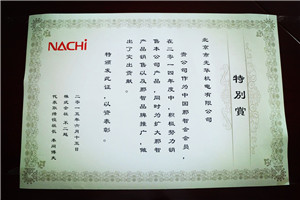 NACHi
特别赏
北京市光华机电有限公司
贵公司作为中国那智会会员，
在二零一四年度中，积极努力销
售本公司产品，同时为扩大那智
产品销售以及那智品牌推广，做
出了突出贡献。
特颁发此证，以资表彰。
二零一五年六月十五日
株式会社 不二越